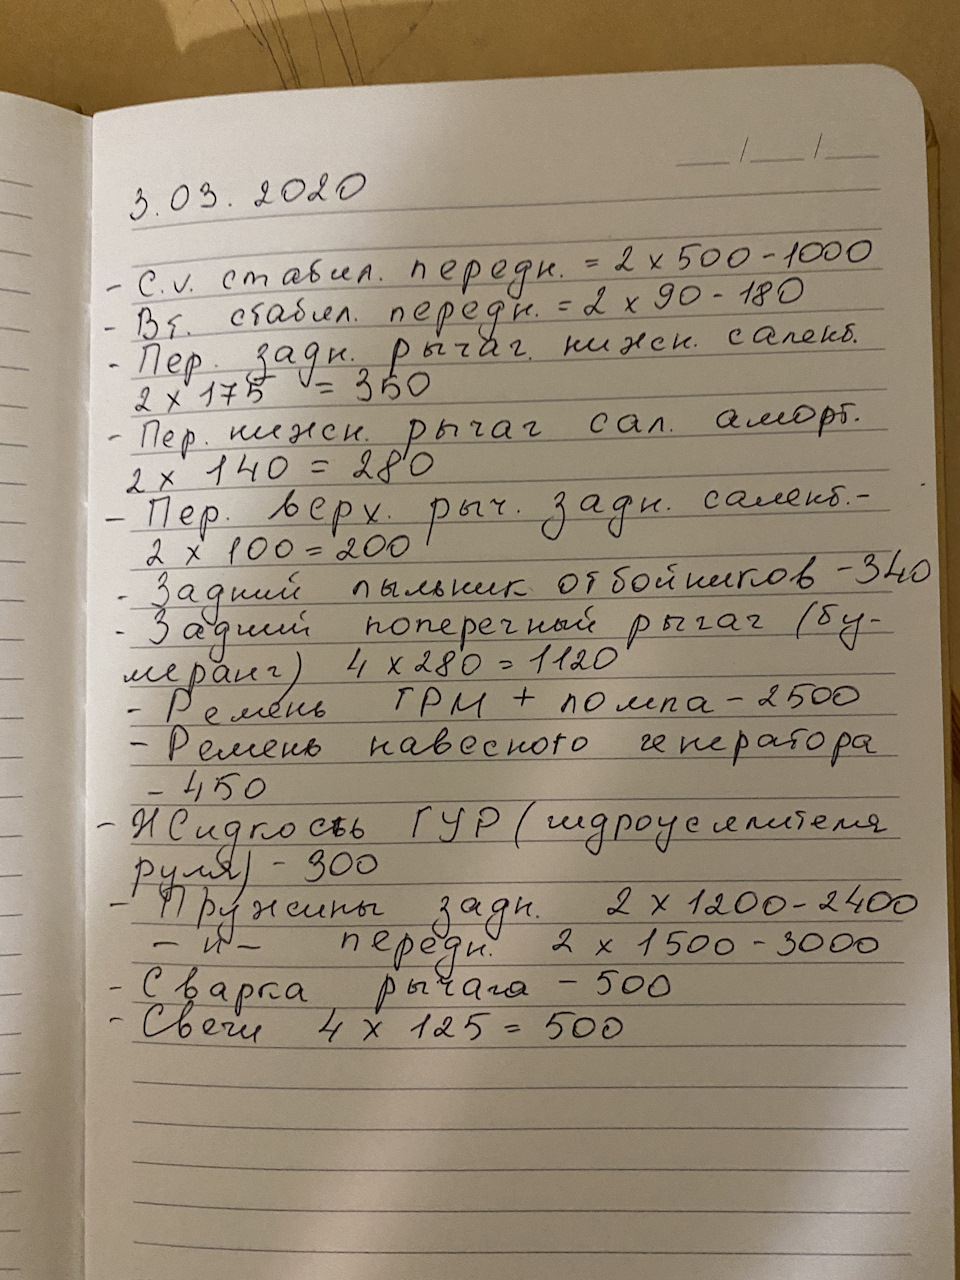 __/__/__
3.03.2020
- С.v. стабил. передн. = 2 x 500 - 1000
- Вт. стабил. передн. = 2 x 90 - 180
- Пер. задн. рычаг. нижн. саленб.
2 x 175 = 350
- Пер. нижн. рычаг сал. аморт.
2 x 140 = 280
- Пер. верх. рыч. задн. саленб. -
2 x 100 = 200
- Задний пыльник отбойников - 340
- Задний поперечный рычаг (бу-
меранг) 4 x 280 = 1120
- Ремень ГРМ + помпа - 2500
- Ремень навесного генератора
- 450
- Жидкость ГУР (гидроусилителя
руля) - 300
- Пружины задн. 2 x 1200 - 2400
- и - передн. 2 x 1500 - 3000
- Сварка рычага - 500
- Свечи 4 x 125 = 500